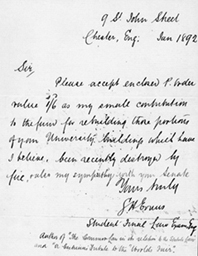 9 St John Street
Chester, Eng. Jan 1892
Sir,
Please accept enclosed P. Order
value 5/6 as my small contribution
to the fund for rebuilding those portions
of your University building which have
I believe, been recently destroyed by
fire, my sympathy with your Senate
Yours truly
G H Evans
Student Final Law Exam
Author of "The Common Law in relation to the
and "a Tribute to the World's Fair".